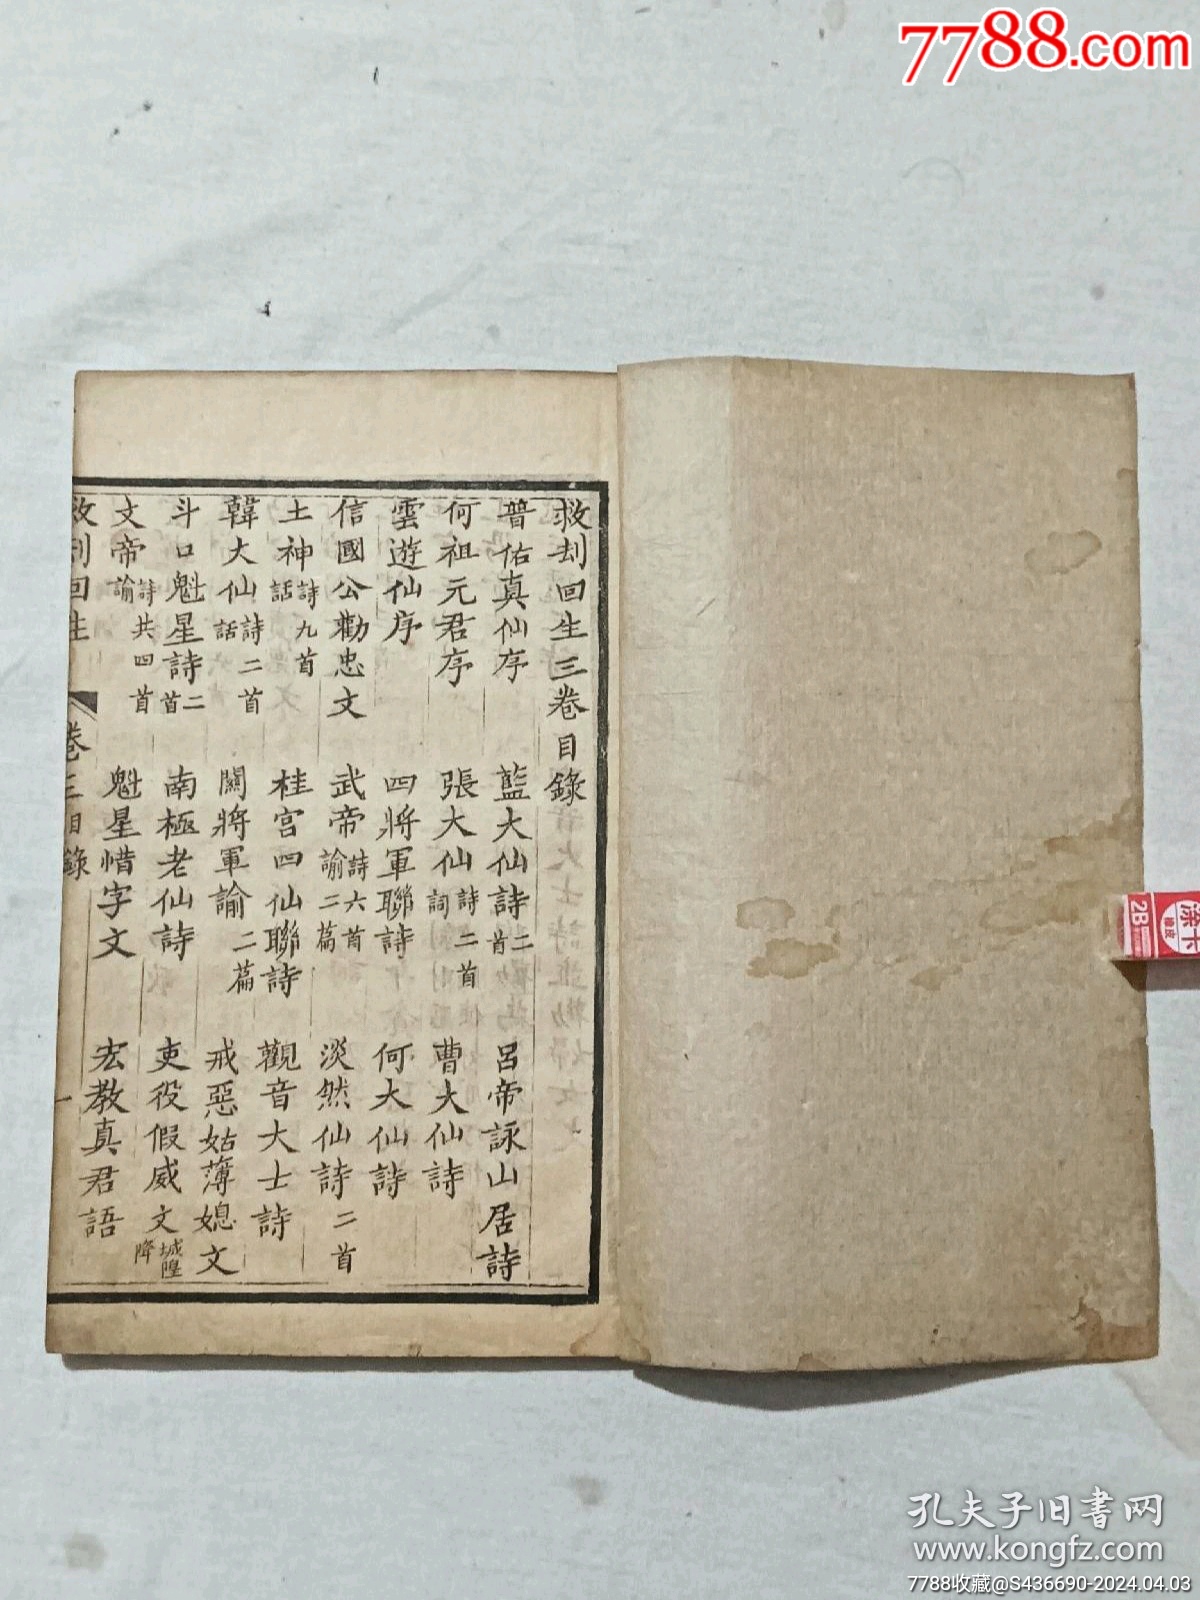 7788.com
救刦回生三卷目錄
普佑真仙序 藍大仙詩二首 呂帝詠山居詩
何祖元君序 張大仙詩二首詞 曹大仙詩
雲遊仙序 四將軍聯詩 何大仙詩
信國公勸忠文 武帝詩六首諭三篇 淡然仙詩二首
土神詩九首話 桂宮四仙聯詩 觀音大士詩
韓大仙詩二首話 關將軍諭二篇 戒惡姑薄媳文
斗口魁星詩二首 南極老仙詩 吏役假威文城隍降
文帝詩共四首諭 魁星惜字文 宏教真君語
救刦回生 卷三目錄 一
2B
涂卡
橡皮
孔夫子旧书网
www.kongfz.com
7788收藏@S436690-2024.04.03